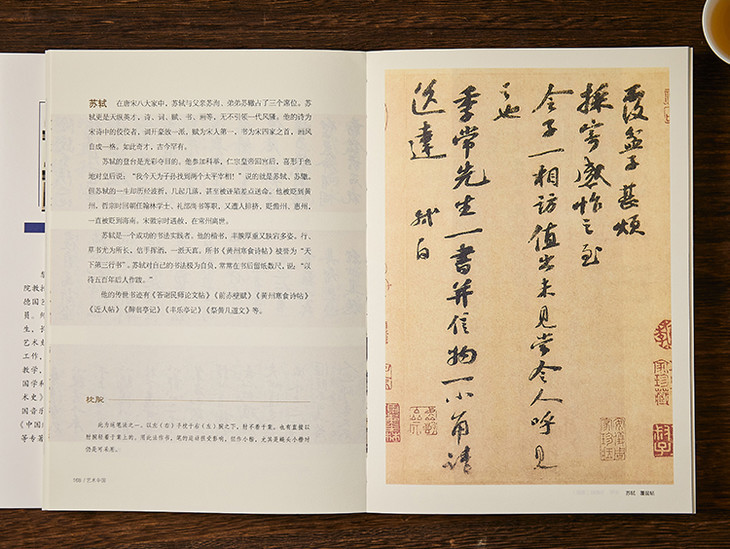 苏轼 在唐宋八大家中，苏轼与父亲苏洵、弟弟苏辙占了三个席位。苏
轼更是天纵英才，诗、词、赋、书、画等，无不引领一代风骚。他的诗为
宋诗中的佼佼者，词开豪放一派，赋为宋人第一，书为宋四家之首，画风
自成一格。如此奇才，古今罕有。
苏轼的登台是光彩夺目的。他参加科举，仁宗皇帝回宫后，喜形于色
地对皇后说：“我今天为子孙找到两个太平宰相！”说的就是苏轼、苏辙。
但苏轼的一生却历经波折，几起几落，甚至被诬陷差点送命。他被贬到黄
州，哲宗时回朝任翰林学士、礼部尚书等职，又遭人排挤，贬儋州、惠州，
一直被贬到海南。宋徽宗时遇赦，在常州离世。
苏轼是一个成功的书法实践者，他的楷书，丰腴厚重又肤宕多姿，行、
草书尤为所长，信手挥洒，一派天真。所书《黄州寒食诗帖》被誉为“天
下第三行书”。苏轼对自己的书法极为自负，常常在书后留纸数尺，说：“以
待五百年后人作跋。”
他的传世书迹有《答谢民师论文帖》《前赤壁赋》《黄州寒食诗帖》
《近人帖》《醉翁亭记》《丰乐亭记》《祭黄几道文》等。
枕腕
此为运笔法之一。以左（右）手枕于右（左）腕之下，肘不着于案。也有直接以
仍是可采用。
168 / 艺术中国
院教
德国
员。
生，长
艺术
工作，
教学，
国学
术史》
国音
《中国
等专著
覆盆子甚烦
採寄感怍之至
令子一相访值出未见当令人呼见
之也
季常先生一书并信物一小角请
送达 轼白
苏轼 覆盆帖